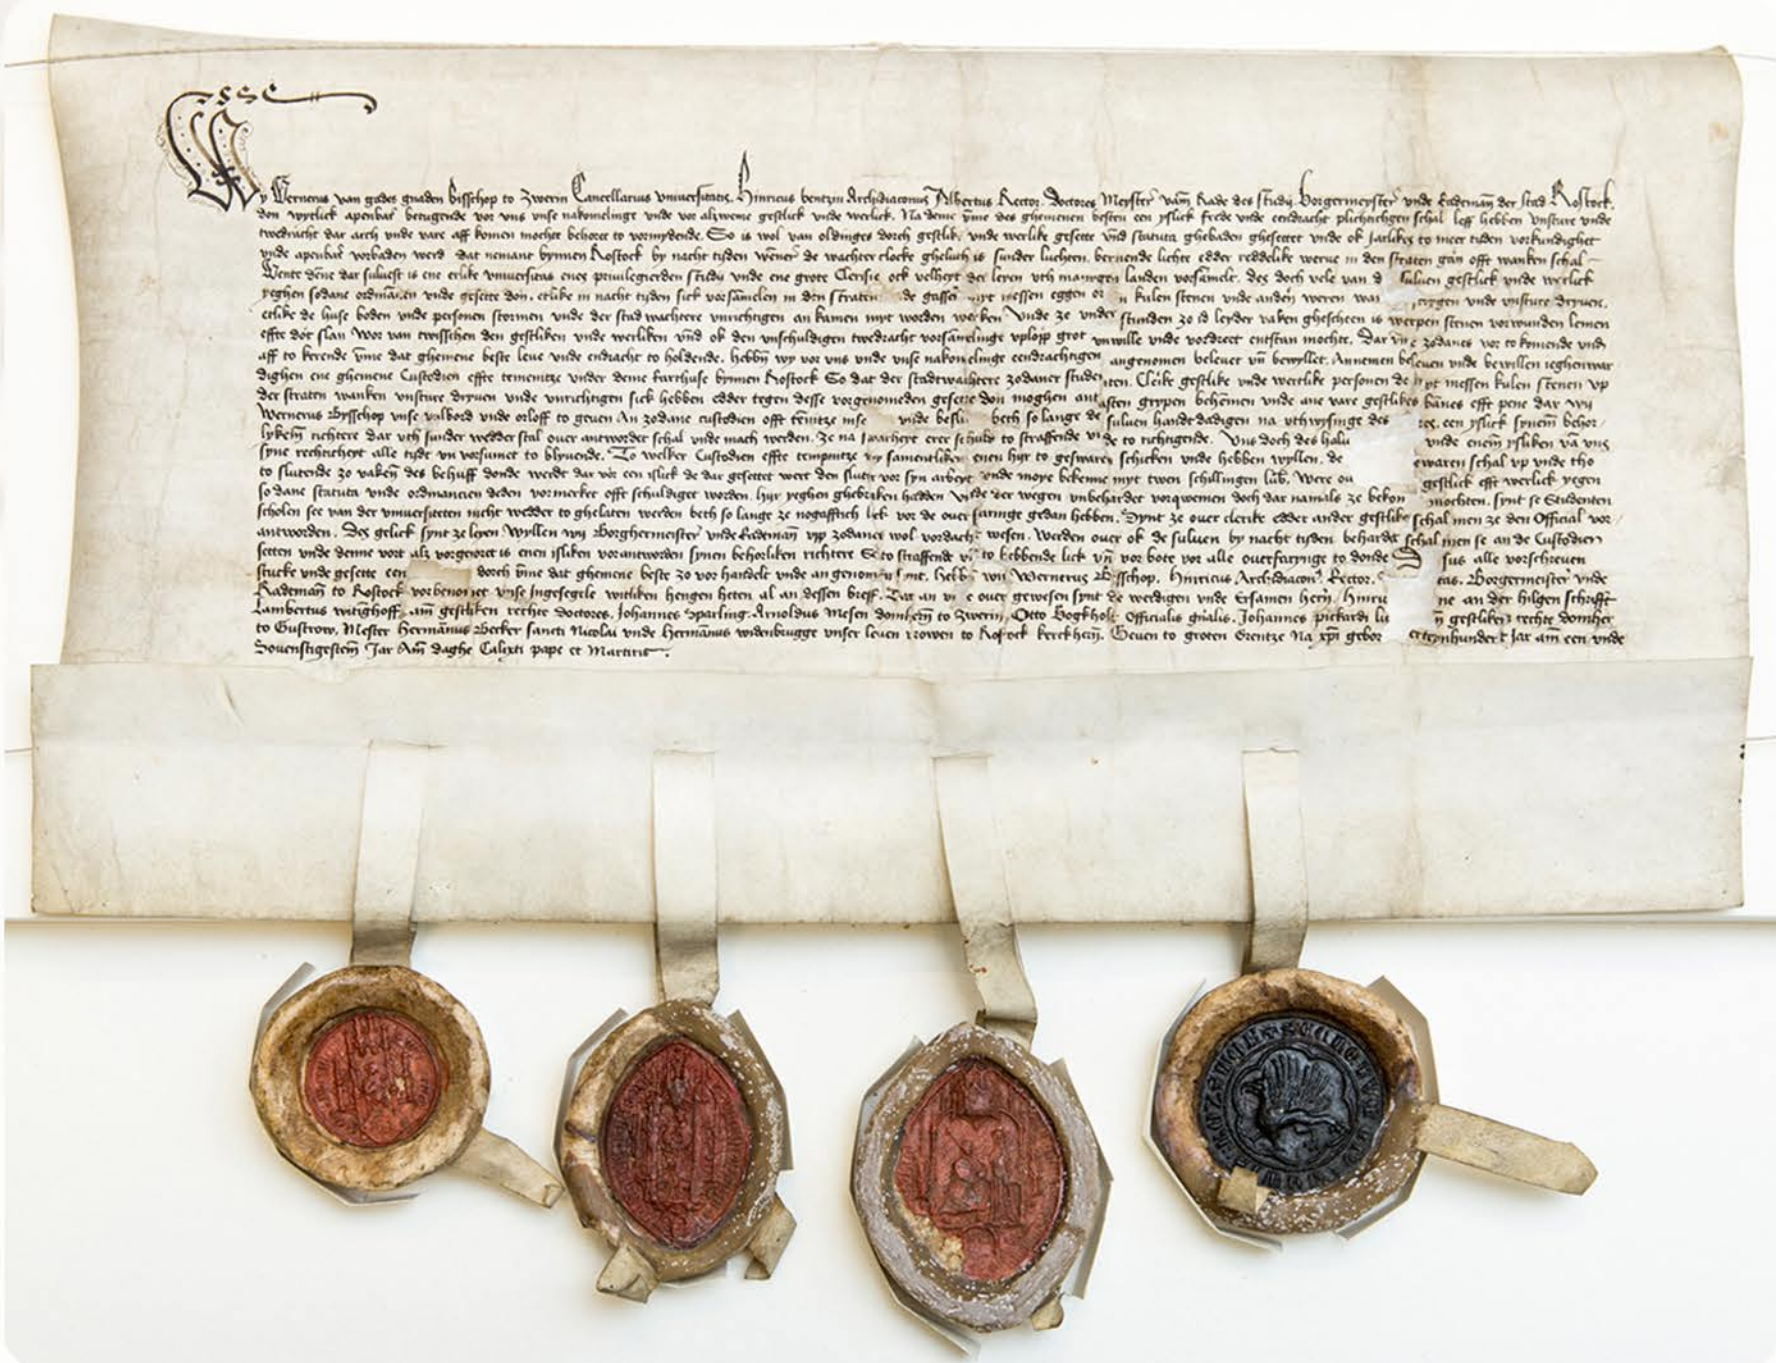 Wy Wernerus van gades gnaden bisschop to Zwerin Cancellarius vniuersitatis. Hinricus bentzin Archidiaconus Albertus Rector. doctores Meyster vam Rade des studij Borgermeyster vnde Radman der stad Rostock.
don wytlick apenbar betugende vor vns vnse nakomelinge vnde vor alzweme gestlick vnde werlick. Na deme vme des ghemenen besten een yslick frede vnde eendracht plichtichgen schal leff hebben vnsture vnde
twedracht dar arch vnde vare aff komen mochte behoret to vormydende. So is wol van oldinges dorch gestlik vnde werlike gesette vnd statuta ghebaden ghesettet vnde ok Jarlikes to meer tiden vorkundighet
vnde apenbar vorbaden werd dat nemant bynnen Rostock by nacht tyden wener de wachter clocke gheluth is sunder luchten. bernende lichte edder reddelike werue in den straten gan offt wanken schal
Wente dene dar suluest is ene erlike vniuersitas enes priuilegierden studij vnde ene grote Clerisie ock velheyt der leyen vth mannygen landen vorsamelt. des doch vele van d suluen gestlick vnde werlick
yeghen sodane ordinancien vnde gesette don. etlike in nacht tyden sick vorsamelen in den straten de gassen myt messen eggen or n kulen stenen vnde anden weren wan krygen vnde vnsture dryuen.
etlike de huse boden vnde personen stormen vnde der stad wachtere vnrichtigen an kamen myt worden werken Vnde ze vnder stunden zo id leyder vaken ghescheen is werpen stenen vorwunden lemen
effte dot slan Wor van twisschen den gestliken vnde werliken vnd ok den vnschuldigen twedracht vorsamelinge vplopp grot vnwille vnde vordreet entstan mochte. Dar vme zodanes vor to komende vnd
aff to kerende vme dat ghemene beste leue vnde endracht to holdende. hebbn wy vor vns vnde vnse nakomelinge eendrachtigen angenomen beleuet vn bewyllet. Annemen beleuen vnde bewillen ieghenwar
dighen ene ghemene Custodien effte temenitze vnder deme karthuse bynnen Rostock So dat der stadtwachtere zodaner studenten. Clerke gestlike vnde wertlike personen de myt messen kulen stenen vp
der straten wanken vnsture dryuen vnde vnrichtigen sick hebben edder tegen desse vorgenomeden gesette don moghen antasten grypen behemen vnde ane vare gestlikes banes efft pene dar wy
Wernerus Bysschop vnse vulbord vnde orloff to geuen An zodane custodien offt temnitze inse vnde beslu beth so lange de suluen handtdadigen na vthwysinge des res. een yslick synem behor
lykem richtere dar vth sunder wedder stal ouer antwordet schal vnde mach werden. Ze na warheyt erer schult to straffende vnde to richtigende. Vns doch des halu vnde enem ysliken van vns
syne rechticheyt alle tydt vn vorsumet to blyuende. To welker Custodien effte tempnitze wy samentliken enen hyr to geswaren schicken vnde hebben wyllen. de ewaren schal vp vnde tho
to slutende zo vaken des behuff donde werdt dar vor een islick de dar gesettet wert den sluter vor syn arbeyt vnde moye bekenne myt twen schillingen lub. Were ou gestlick efft werlick yegen
sodane statuta vnde ordinancien deden vormerket offt schuldiget worden. hyr yeghen ghebreken hadden vnde der wegen vnbehardet vorqwemen doch dar namals ze bekon mochten. synt se Studenten
scholen see van der vniuersiteten nicht wedder to ghelaten werden beth so lange ze nogafftich lick vor de ouerfaringe gedan hebben. Synt ze ouer clerike edder ander gestlike schal men ze den Official vor
antworden. Des gelick synt ze leyen Wyllen wy Borghermeister vnde Radman vp zodanes wol vordacht wesen. Werden ouer ok de suluen by nacht tyden behardet schal men se an de Custodien
setten vnde denne vort alz vorgeroret is enen isliken vorantworden synen behorliken richtere Se to straffende vn to hebbende lick vn vor bote vor alle ouerfarynge to donde sus alle vorschreuen
stucke vnde gesette een dorch vme dat ghemene beste zo vor handelt vnde angenomen synt. hebb wy Wernerus Bisschop. Hinricus Archidiacon. Rector. tas. Borgermeister vnde
Radman to Rostock vorbenomet vnse Ingesegele witliken hengen heten al an dessen breff. Dar an vn e ouer gewesen synt de werdigen vnde Ersamen hern Hinric ne an der hilgen schrifft
Lambertus witighoff am gestliken rechte doctores. Johannes Sparling. Arnoldus Mesen domhern to Zwerin. Otto Bogkholt Officialis gnalis. Johannes pickardi li n gestliken rechte domher
to Gustrow. Mester Hermanus Becker sancti Nicolai vnde Hermanus widenbrugge vnser leuen vrowen to Rostock kerckhern. Geuen to groten Grentze Na xpi gebor erteynhundert Jar am een vnde
Souenstigestem Jar Am daghe Calixti pape et Martiris.